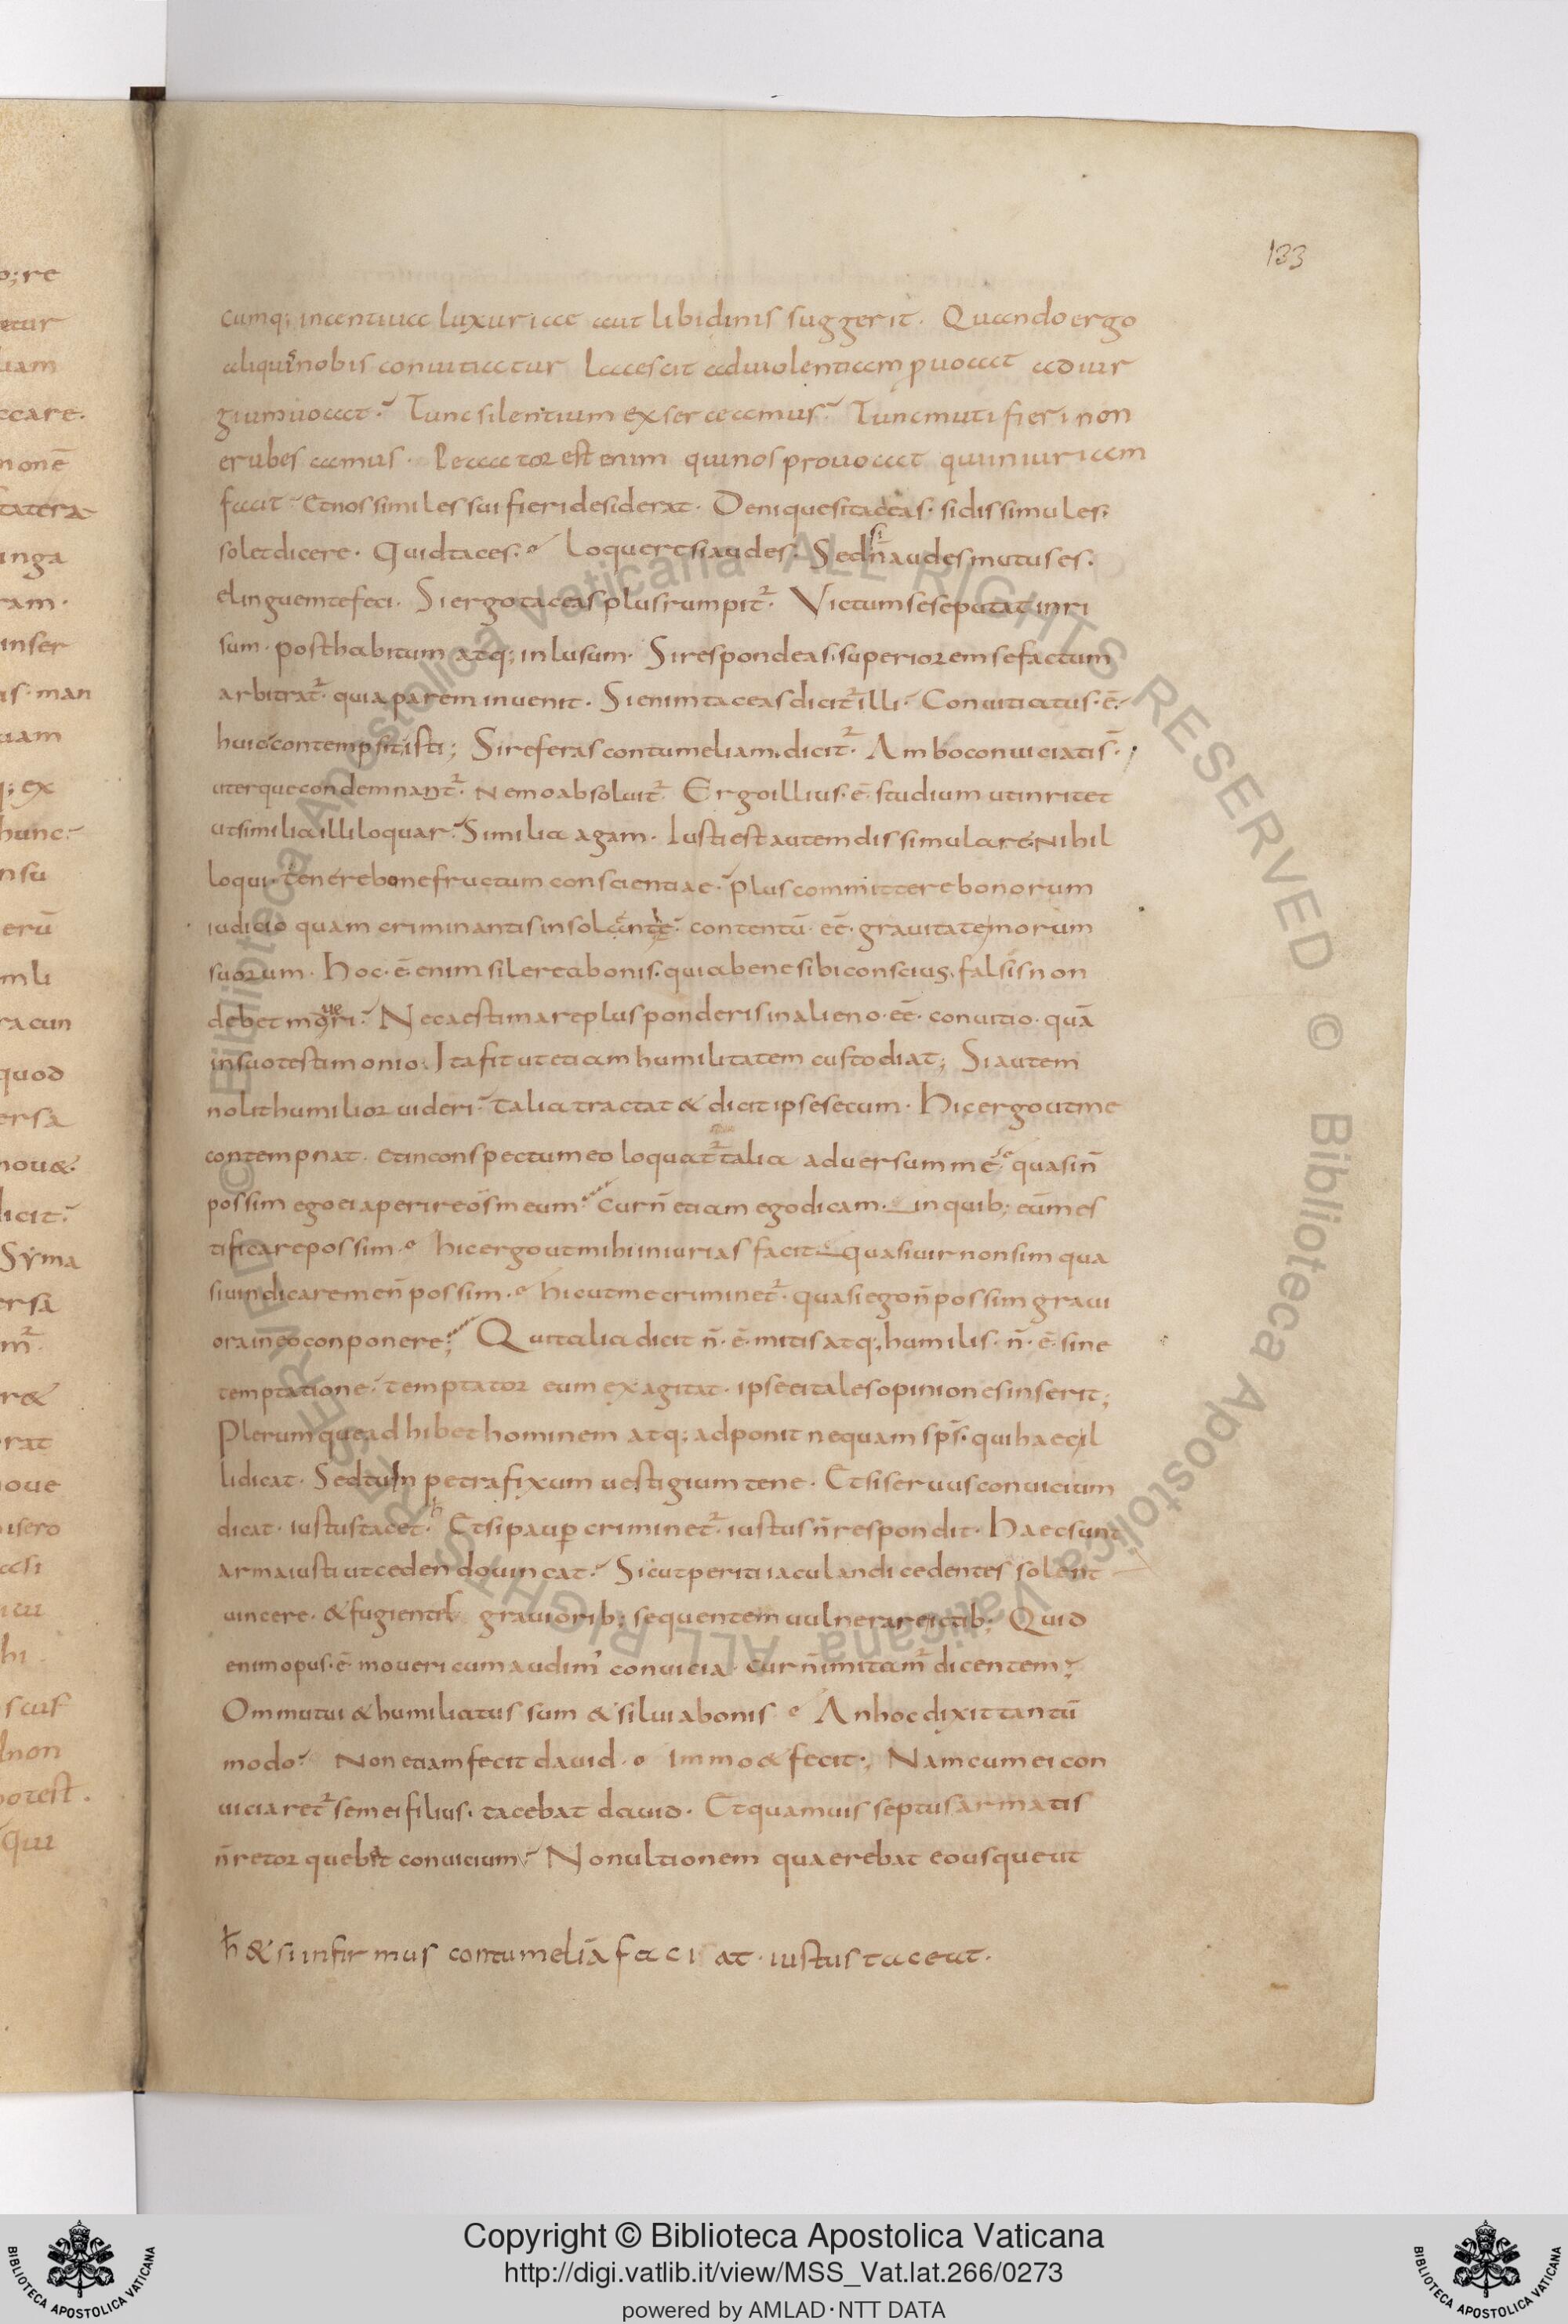 133
cumq; incentiua luxuriae aut libidinis suggerit. Quando ergo
aliquis nobis conuitiatur lacescit ad uiolentiam puocat ad iur
gium uocat. Tunc silentium exserceamus. Tunc muti fieri non
erubescamus. Peccator est enim qui nos prouocat qui iniuriam
facit et nos similes sui fieri desiderat. Denique si taceas. si dissimules.
solet dicere. Quid taces. loquere si audes. Sed si n̄ audes mutus es.
elinguem te feci. Si ergo taceas plus rumpit᷑. Victum sese putat inri
sum. posthabitum atq; inlusum. Si respondeas. superiorem se factum
arbitrat᷑. quia parem inuenit. Si enim taceas dicit᷑ illi. Conuitiatus. ē.
huic contempsit isti; Si referas contumeliam. dicit᷑. Ambo conuiciati s̄.
uterque condemnant᷑. Nemo absoluit᷑. Ergo illius. ē. studium ut inritet
ut similia illi loquar. Similia agam. Iusti est autem dissimulare. Nihil
loqui. tenere bone fructum conscientiae. Plus committere bonorum
iudicio quam criminantis insolentie. contentū. eē. grauitate morum
suorum. Hoc. ē. enim silere a bonis. quia bene sibi conscius. falsis non
debet moueri. Nec aestimare plus ponderis in alieno. eē. conuitio. quā
in suo testimonio. Ita fit ut etiam humilitatem custodiat; Si autem
nolit humilior uideri. talia tractat & dicit ipse secum. Hic ergo ut me
contempnat. et in conspectu meo loquat᷑ talia aduersum me. quasi n̄
possim ego ei aperire os meum. Cur n̄ etiam ego dicam. in quib; eum mes
tificare possim. hic ergo ut mihi iniurias facit quasi uir non sim qua
si uindicare me n̄ possim. hic ut me criminet᷑. quasi ego n̄ possim graui
ora in eo conponere; Qui talia dicit n̄. ē. mitis atq; humilis. n̄. ē. sine
temptatione. temptator eum exagitat. ipse ei tales opiniones inserit;
Plerumque adhibet hominem atq; adponit nequam sps̄. qui haec il
li dicat. Sed tu in petra fixum uestigium tene. Et si seruus conuicium
dicat. iustus tacet. h Et si paup criminet᷑. iustus n̄ respondit. Haec sunt
arma iusti ut cedendo uincat. Sicut periti iaculandi cedentes solent
uincere. & fugientes grauiorib; sequentem uulnerare ictib; Quid
enim opus. ē. moueri cum audim' conuicia cur n̄ imitam᷑ dicentem;
Ommutui & humiliatus sum & silui a bonis An hoc dixit tantū
modo. Non etiam fecit dauid. Immo & fecit; Nam cum ei con
uiciaret᷑ semei filius. tacebat dauid. Et quamuis septus armatis
n̄ retorquebat conuicium. Non ultionem quaerebat eo usque ut
h̄ & si infirmus contumeliā faciat. iustus taceat.
Copyright © Biblioteca Apostolica Vaticana
http://digi.vatlib.it/view/MSS_Vat.lat.266/0273
powered by AMLAD·NTT DATA
BIBLIOTECA APOSTOLICA VATICANA
BIBLIOTECA APOSTOLICA VATICANA
© Biblioteca Apostolica Vaticana ALL RIGHTS RESERVED © Biblioteca Apostolica Vaticana ALL RIGHTS RESERVED